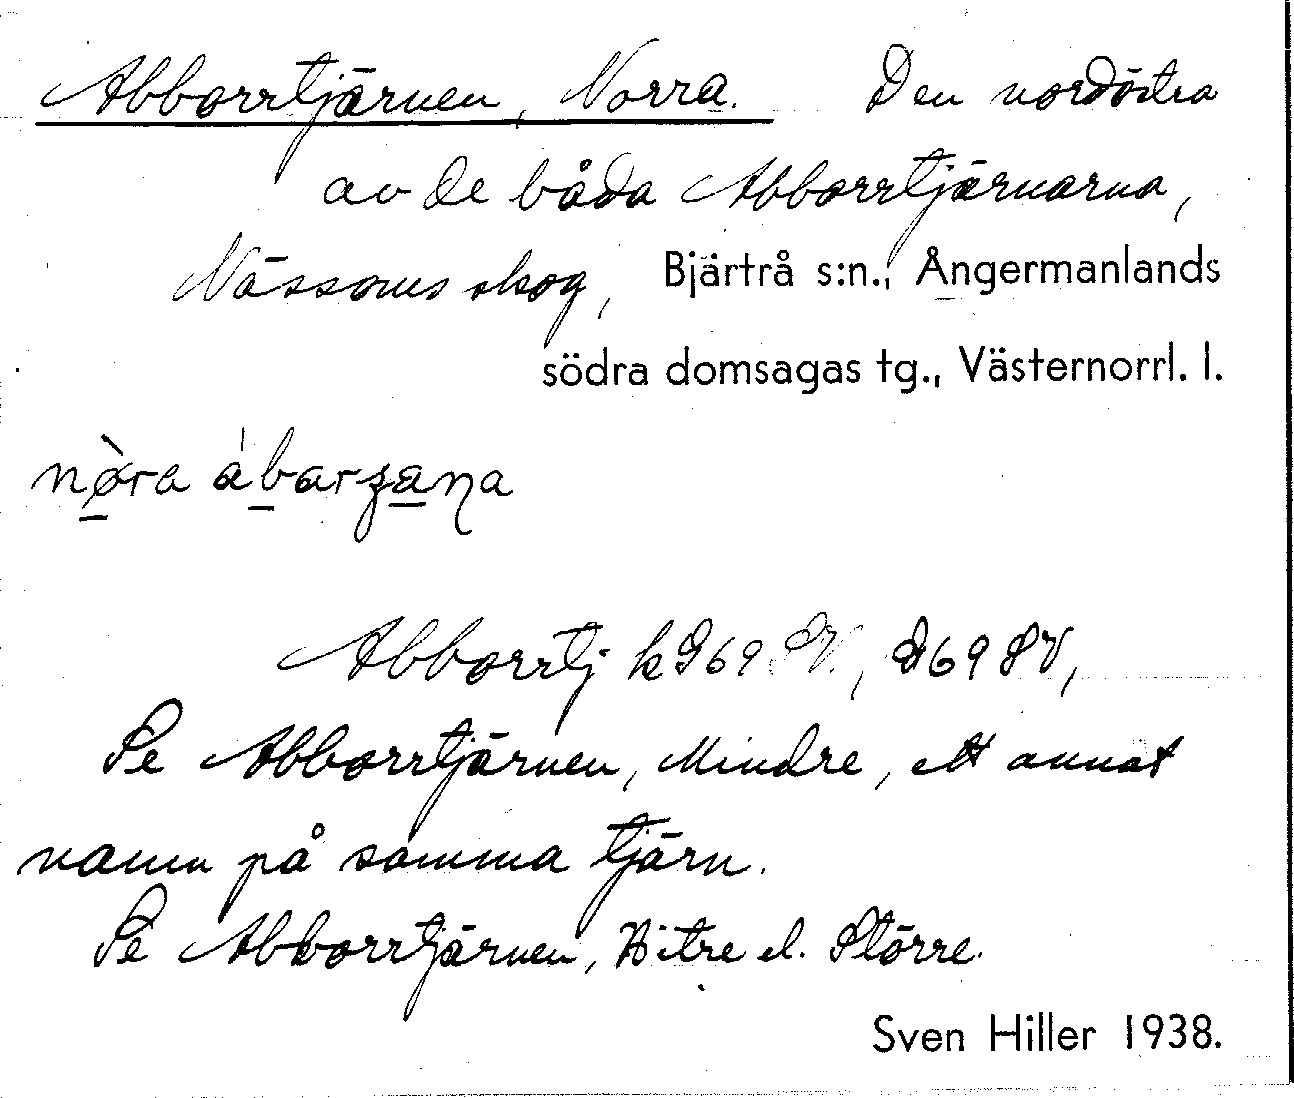 Abborrtjärnen, Norra. Den nordöstra
av de båda Abborrtjärnarna,
Nässoms skog, Bjärtrå s:n., Ångermanlands
södra domsagas tg., Västernorrl. l.
Abborrtj k 969 SV., 969 SV,
Se Abborrtjärnen, Mindre, ett annat
namn på samma tjärn.
Se Abborrtjärnen, Bitre el. Större.
Sven Hiller 1938.